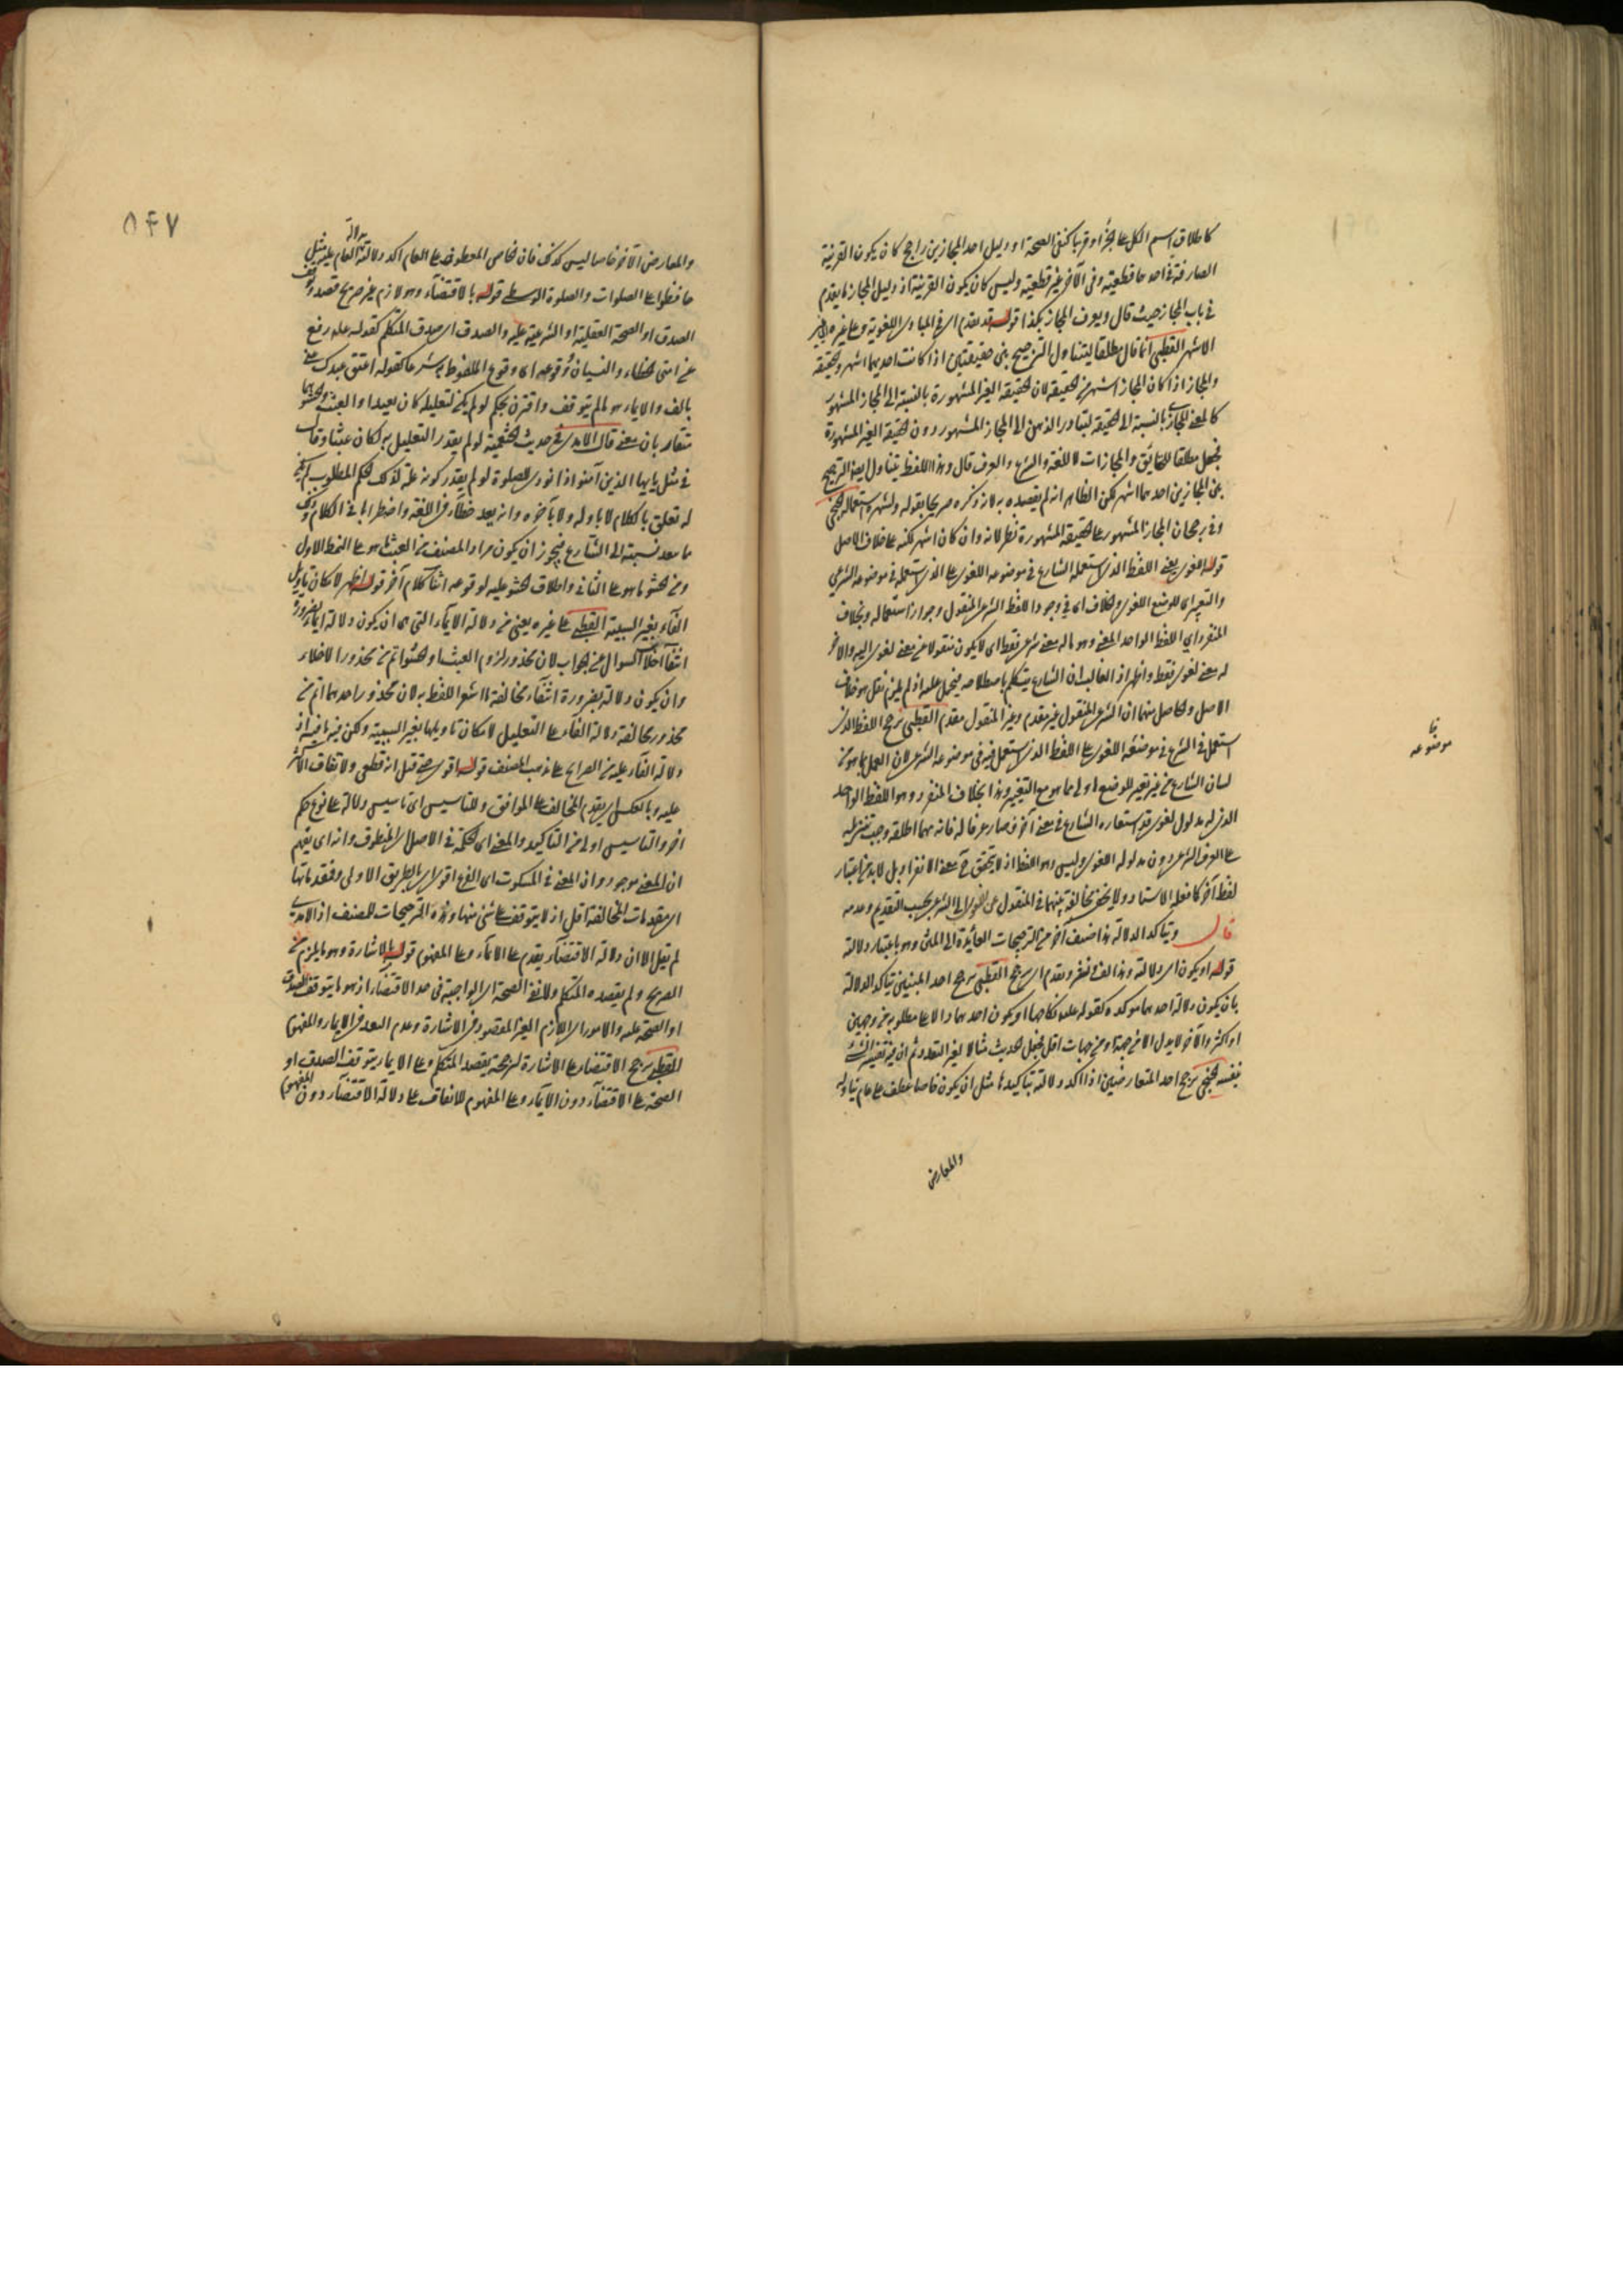 كاطلاق اسم الكل على الجزء او قربا كنفي الصحة او دليل احد المجازين راجح كان يكون القرينة
الصارفة في احدهما قطعية وفي الآخر غير قطعية وليس كان يكون القرينة اذ دليل المجاز ما يقدم
في باب المجاز حيث قال ويعرف المجاز بكذا قوله تقدم اي في المبادي اللغوية وعلى غيره
الاشهر القطبي انما قال مطلقا ليتناول الترجيح بين حقيقتين اذا كانت احديهما اشهر والحقيقة
والمجاز اذا كان المجاز اشهر من الحقيقة لان الحقيقة الغير المشهورة بالنسبة الى المجاز المشهور
كالمعنى المجازي بالنسبة الى الحقيقة لتبادر الذهن الى المجاز المشهور دون الحقيقة الغير المشهورة
فجعل مطلقا للحقائق والمجازات لا اللغة والشرع والعرف قال وهذا اللفظ يتناول ايضا الترجيح
بين المجازين احدهما اشهر لكن الظاهر انه لم يقصده به لانه ذكره صريحا بقوله ولشهرة استعماله الخنجي
وفي رجحان المجاز المشهور على الحقيقة المشهورة نظر لانه وان كان اشهر لكنه على خلاف الاصل
قوله اللغوي يعني اللفظ الذي استعمله الشارع في موضوعه اللغوي على الذي استعمله في موضوعه الشرعي
والتغير اي للوضع اللغوي والخلاف اي في وجود اللفظ الشرعي المنقول وجواز استعماله وبخلاف
المنفرد اي اللفظ الواحد المعنى وهو ماله معنى شرعي فقط اي لا يكون منقولا عن معنى لغوي اليه والآخر
له معنى لغوي فقط وانه اذ الغالب ان الشارع يتكلم باصطلاحه فيحمل عليه اذ لم يلزم نقل هو خلاف
الاصل والحاصل منهما ان الشرعي المنقول غير مقدم وغير المنقول مقدم القطبي يرجح اللفظ الذي
استعمل في الشرع في موضعه اللغوي على اللفظ الذي استعمل فيه في موضوعه الشرعي لان العمل بما هو من
لسان الشارع من غير تغيير للوضع اولى مما هو مع التغيير وهذا بخلاف المنفرد وهو اللفظ الواحد
الذي له مدلول لغوي قد استعاره الشارع في معنى آخر فصار عرفا له فانه مهما اطلقه وجب تنزيله
على العرف الشرعي دون مدلوله اللغوي وليس وهو اللفظ اذ لا يتحقق ح معنى الانفراد بل لابد من اعتبار
لفظ آخر كما فعله الاستاد ولا يخفى مخالفة بينهما في المنقول عن اللغوي الى الشرعي بحسب التقديم وعدمه
قال وتأكد الدلالة هذا صنف آخر من الترجيحات العائدة الى المتن وهو باعتبار دلالة
قوله او يكون اي دلالته وهذا لف ونشر وتقدم اي يرجح القطبي يرجح احد المبنيين بتأكد الدلالة
بان يكون دلالة احدهما مؤكدة كقوله عليه نكاحها او يكون احدهما دالا على مطلوبه من وجهين
او اكثر والآخر لا يدل الا من جهة او من جهات اقل فجعل الحديث مثالا لغير التعدد ثم ان فيه تقييد الشيء
بنفسه الخنجي يرجح احد المتعارضين اذا اكد دلالته بتأكيد ما مثل ان يكون خاصا عطف على عام تناوله
والمعارض
بنا
موضوعه
٥٤٧
والمعارض الآخر خاصا ليس كذلك فان خاص المعطوف على العام اكد دلالته العام عليه مثل
حافظوا على الصلوات والصلوة الوسطى قوله بالاقتضاء وهو لازم غير صريح قصد وتوقف
الصدق او الصحة العقلية او الشرعية عليه والصدق اي صدق المتكلم كقوله عليه رفع
عن امتي الخطاء والنسيان ووقوعه اي وقوع الملفوظ به شرعا كقوله اعتق عبدك عني
بالف والايماء هو لم يتوقف واقترن بحكم لو لم يكن لتعليله كان بعيدا والعبث والحشو هما
متقاربان معنى قال الآمدي في حديث الخثعمية لو لم يقدر التعليل به لكان عبثا وقال
في مثل يايها الذين آمنوا اذا نودي للصلوة لو لم يقدر كونه علة لذلك الحكم المطلوب لم يكن
له تعلق بالكلام لا باوله ولا بآخره وانه يعد خطأ في اللغة واضطرابا في الكلام وذلك
ما يبعد نسبته الى الشارع فيجوز ان يكون مراد المصنف من العبث ما هو على النمط الاول
ومن الحشو ما هو على الثاني واطلاق الحشو عليه لوقوعه اثناء كلام آخر قوله اظهر لامكان تاويل
الفاء بغير السببية القطبي على غيره يعني من دلالة الايماء التي هي ان يكون دلالة ايماء بضرورة
انتفاء السوال عن الجواب لان محذور لزوم العبث او الحشو اتم من محذور الاخلاء
وان يكون دلالته بضرورة انتفاء مخالفة ما اشعر اللفظ به لان محذور احدهما اتم من
محذور مخالفة دلالة الفاء على التعليل لامكان تاويلها بغير السببية ولكن فيه ما فيه اذ
دلالة الفاء عليه من الصرايح على مذهب المصنف قوله اقوى حتى قيل انه قطعي ولاتفاق الاكثر
عليه وبالعكس اي يقدم المخالف على الموافق وللتاسيس اي تاسيس دلالته على نوع حكم
آخر والتاسيس اولى من التاكيد والمعنى اي الحكمة في الاصل اي المنطوق وانه اي يفهم
ان المعنى موجود وان المعنى في المسكوت اي الفرع اقوى اي بالطريق الاولى وفقد ماتها
اي مقدمات المخالفة اقل اذ لا يتوقف على شئ منها وهذه الترجيحات للمصنف اذ الآمدي
لم يقل الا ان دلالة الاقتضاء يقدم على الايماء وعلى المفهوم قوله الاشارة وهو ما يلزم من
الصريح ولم يقصده المتكلم ولانه الصحة اي الواجبة في حد الاقتضاء اذ هو ما يتوقف الصدق
او الصحة عليه والامور اي اللازم الغير المقصود في الاشارة وعدم البعد في الايماء والمفهوم
القطبي يرجح الاقتضاء على الاشارة لترجحه بقصد المتكلم وعلى الايماء بتوقف الصدق او
الصحة على الاقتضاء دون الايماء وعلى المفهوم للاتفاق على دلالة الاقتضاء دون المفهوم